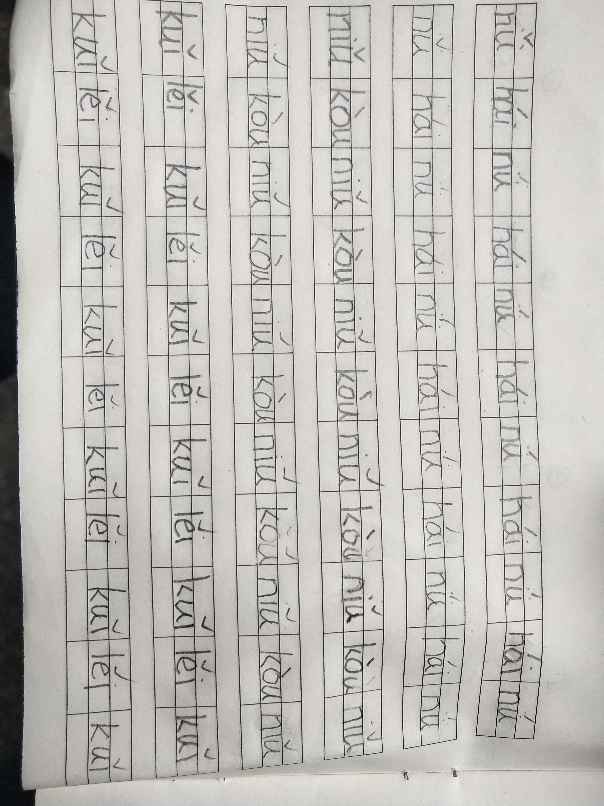 nǚ hái nǚ hái nǚ hái nǚ hái nǚ hái nǚ
nǚ hái nǚ hái nǚ hái nǚ hái nǚ hái nǚ
niǔ kòu niǔ kòu niǔ kòu niǔ kòu niǔ kòu niǔ
niǔ kòu niǔ kòu niǔ kòu niǔ kòu niǔ kòu niǔ
kuǐ lěi kuǐ lěi kuǐ lěi kuǐ lěi kuǐ lěi kuǐ
kuǐ lěi kuǐ lěi kuǐ lěi kuǐ lěi kuǐ lěi kuǐ